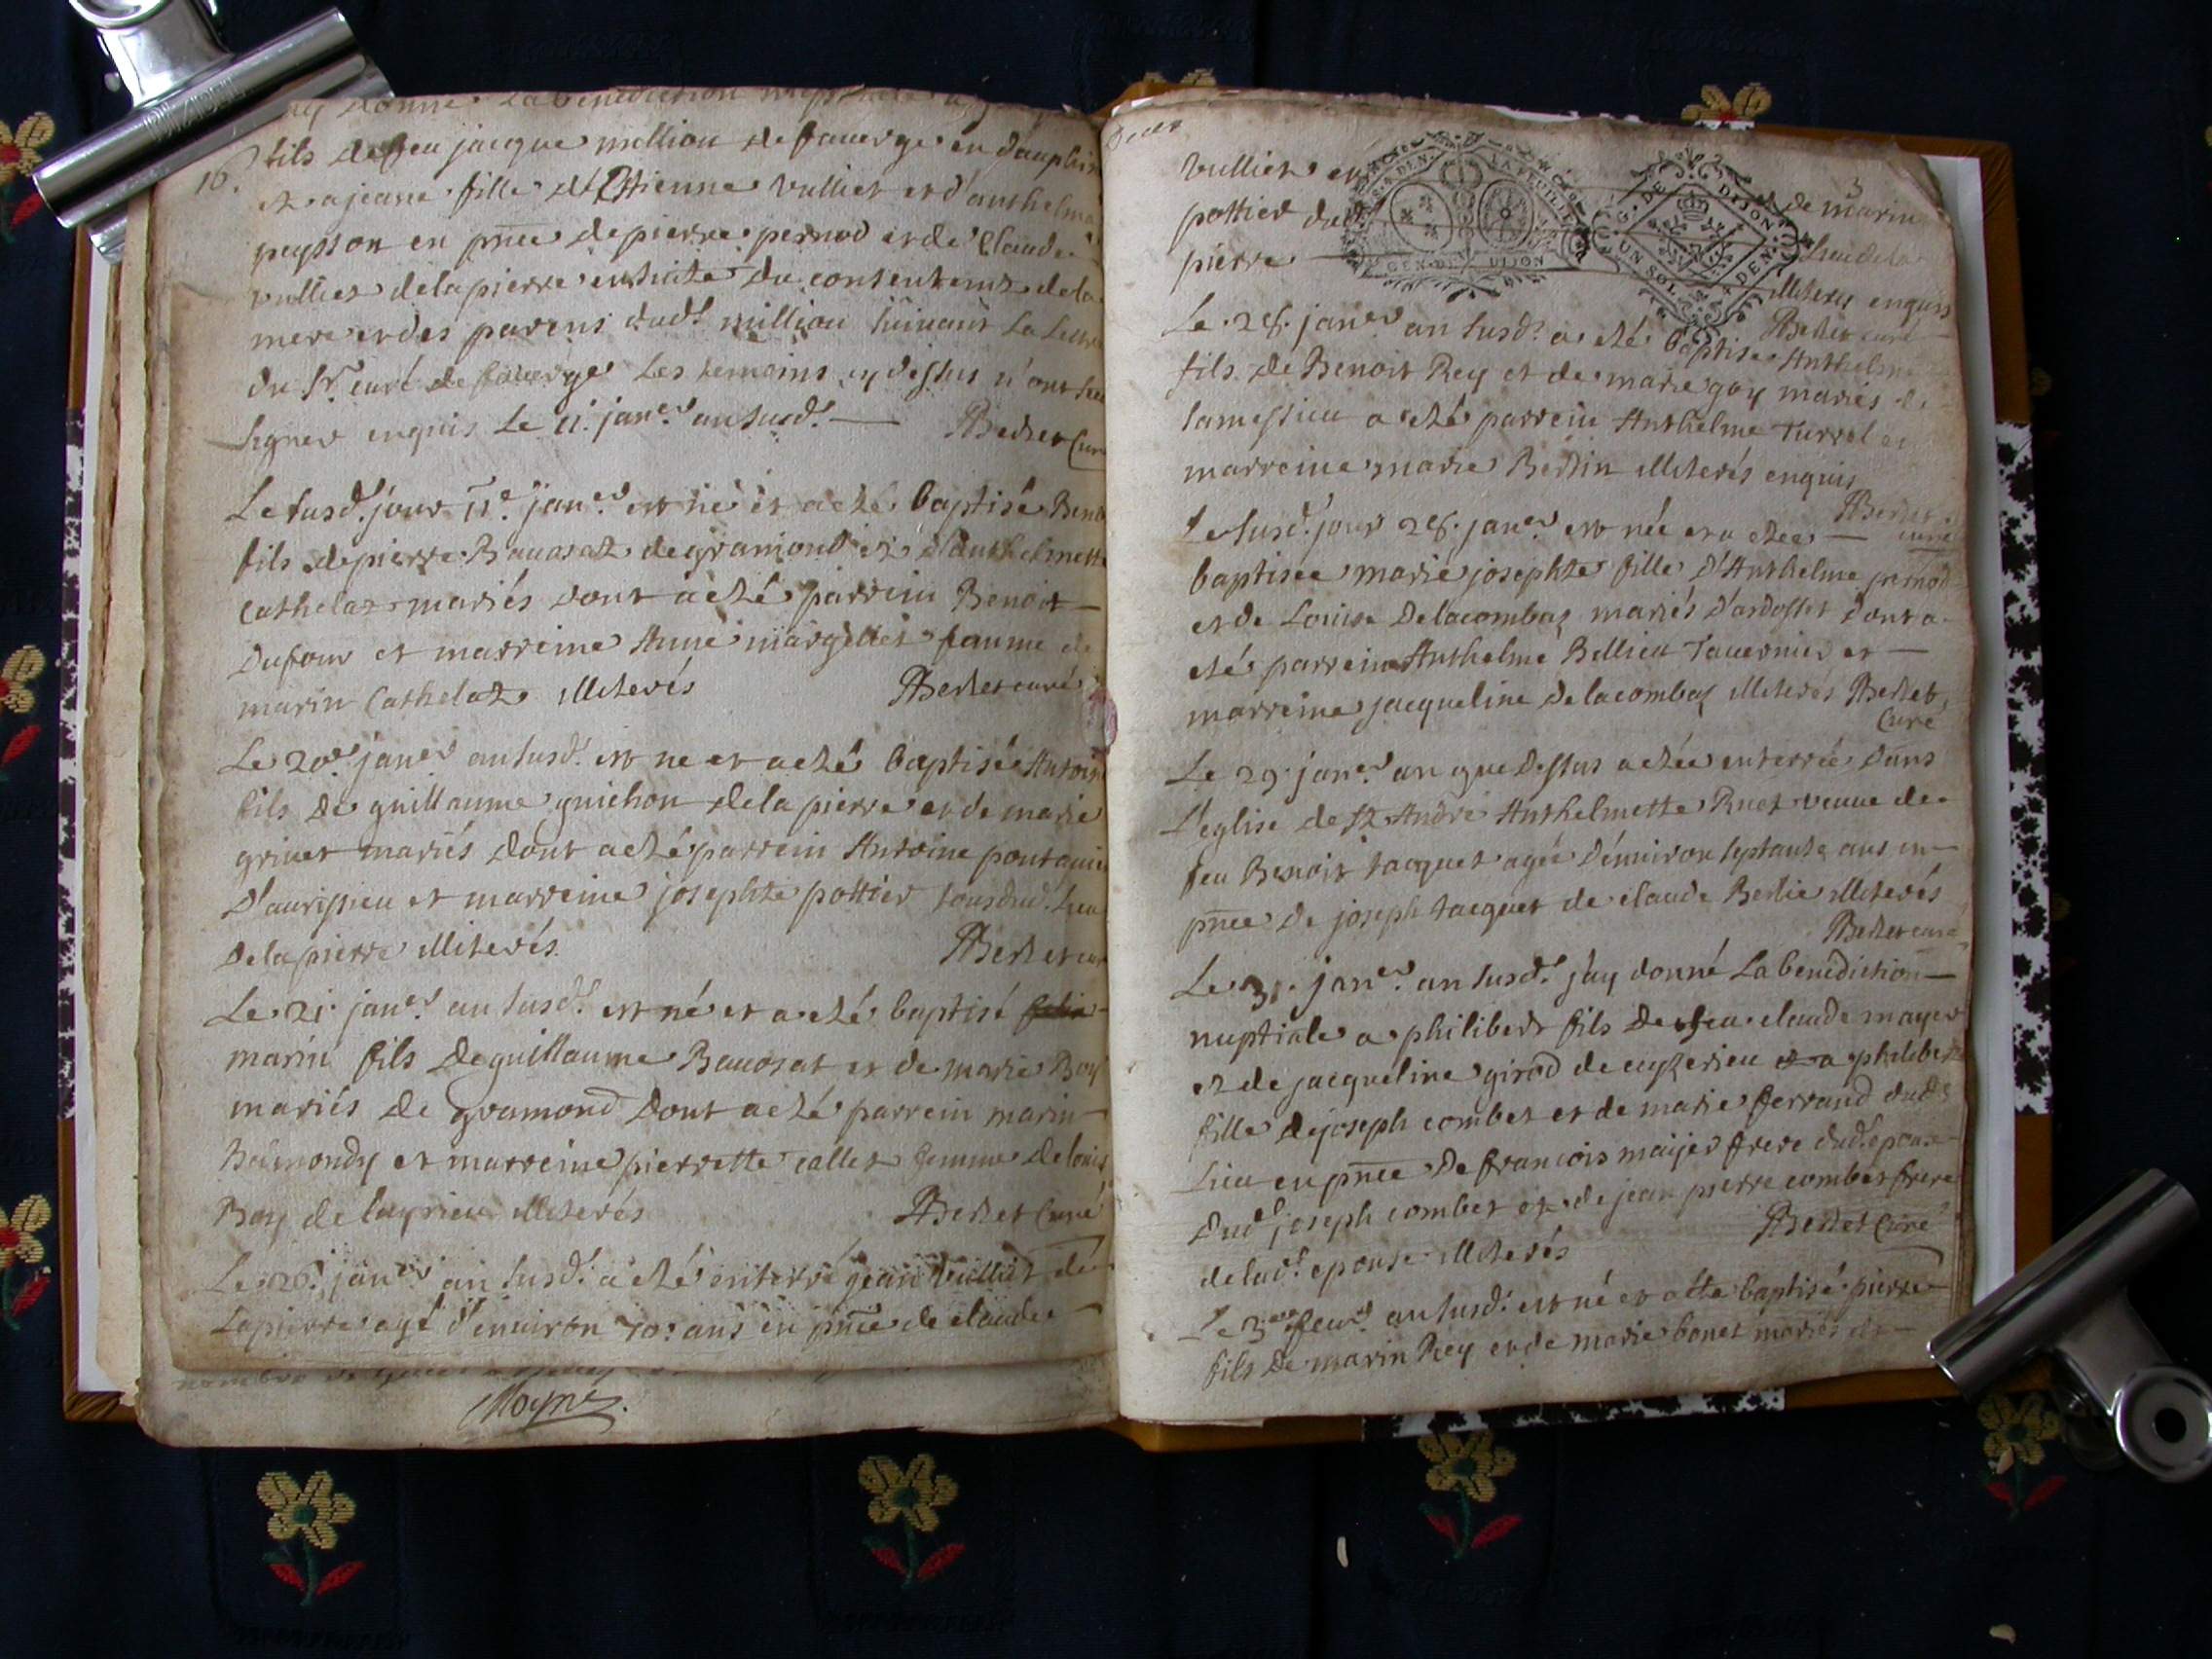 ay donné la benediction nuptiale a
16. fils de feu jacque million de fauerge en dauphin
et a jeane fille d'Etienne vulliet et d'anthelme
peysson en pnce de pierre pernod et de claude
vulliet de la pierre ensuite du consentemt de la
mere et des parens dudt million suiuant la lettre
du Sr curé de fauerge les temoins cy dessus n'ont sceu
signer enquis le 11. janer an susdt
Berlet curé
Le susdt jour 11e janer est né et a eté baptisé Benoit
fils de pierre Bauosat de gramond et d'anthelmette
Cathelaz mariés dont a eté parrein Benoit
Dufour et marreine Anne margellet famme de
marin Cathelaz illiterés Berlet curé
Le 20e janer an susdt est ne et a eté baptisé Antoine
fils de guillaume guichon de la pierre et de marie
griuet mariés dont a eté parrein Antoine pontanier
d'aurissieu et marreine josephte pottier tous dudt lieu
de la pierre illiterés. Berlet curé
Le 21. janer an susdt est né et a eté baptisé
marin fils de guillaume Bauosat et de marie Boy
mariés de gramond dont a eté parrein marin
Baimondy et marreine pierrette callet femme de louis
Boy de luyrieu illiterés Berlet Curé
Le 26. janer an susdt a eté enterré jean vulliet de
Lapierre agé d'enuiron 70. ans en pnce de claude
Moyne
vulliet et de marin
pottier dudt lieu de la
pierre illiterés enquis
Berlet curé
Le 28. janer an susdt a eté baptisé Anthelme
fils de Benoit Rey et de marie goy mariés de
lamessieu a eté parrein Anthelme Turrel et
marreine marie Bertin illiterés enquis
Berlet curé
Le susdt jour 28. janer est née et a etée
baptisée marie josephte fille d'Anthelme pernod
et de Louise Delacombaz mariés d'ardosset dont a
eté parrein Anthelme Bellieu Tauernier et
marreine jacqueline Delacombaz illiterés Berlet
Curé
Le 29. janer an que dessus a etée enterrée dans
l'eglise de St André Anthelmette Ruet veuue de
feu Benoit tacquet agée d'enuiron septante ans en
pnce de joseph tacquet de claude Berlie illiterés
Berlet curé
Le 31. janer an susdt j'ay donné la benediction
nuptiale a philibert fils de feu claude mayer
et de jacqueline girod de ceyzerieu et a philiberte
fille de joseph combet et de marie ferrand dudt
Lieu en pnce de francois maijer frere dudt epoux
dudt joseph combet et de jean pierre combet frere
de ladt epouse illiterés Berlet Curé
Le 3e feur an susdt est né et a ette baptisé pierre
fils de marin Rey et de marie bonet mariés de
GEN. DE DIJON
LA FEUILLE
G. DE DIJON
UN SOL 4 DEN.
3